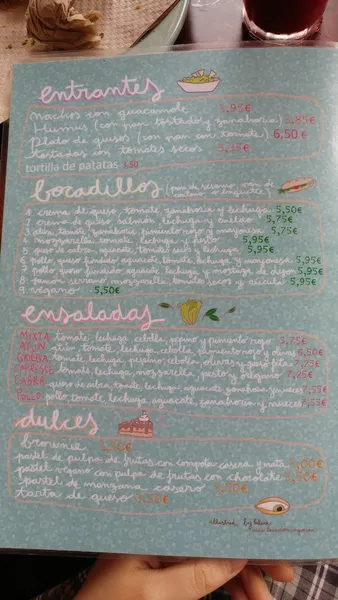 entrantes
Nachos con guacamole 3,95€
Humus (con pan tostado y zanahoria) 3,85€
Plato de quesos (con pan con tomate) 6,50€
tostados con tomates secos
tortilla de patatas 3,50
bocadillos
1. crema de queso, tomate, zanahoria y lechuga 5,50€
2. crema de queso, salmón, lechuga y 5,75€
3. atún, tomate, zanahoria, pimiento rojo y mayonesa 5,75€
4. mozzarella, tomate, lechuga y pesto 5,95€
5. queso de cabra, aguacate, tomates secos y lechuga 5,95€
6. pollo, queso fundido, aguacate, tomate, lechuga y mayonesa 5,95€
7. pollo, queso fundido, aguacate, lechuga y mostaza de dijon 5,95€
8. jamón serrano, mozzarella, tomates secos y rúcula 5,95€
9. vegano 5,50€
ensaladas
MIXTA tomate, lechuga, cebolla, pepino y pimiento rojo 5,75€
ATÚN atún, tomate, lechuga, cebolla, pimiento rojo y olivas 6,50€
GRIEGA tomate, lechuga, pepino, cebolla, olivas y queso feta 7,25€
CAPRESSE tomate, lechuga, mozzarella, pesto y orégano 7,25€
CABRA queso de cabra, tomate, lechuga, aguacate, zanahoria y nueces 7,55€
POLLO pollo, tomate, lechuga, aguacate, zanahoria y nueces 7,55€
dulces
brownie 3,50€
pastel de pulpa de frutas con compota casera y nata
pastel vegano con pulpa de frutas con chocolate
pastel de manzana casero
tarta de queso 3,50€